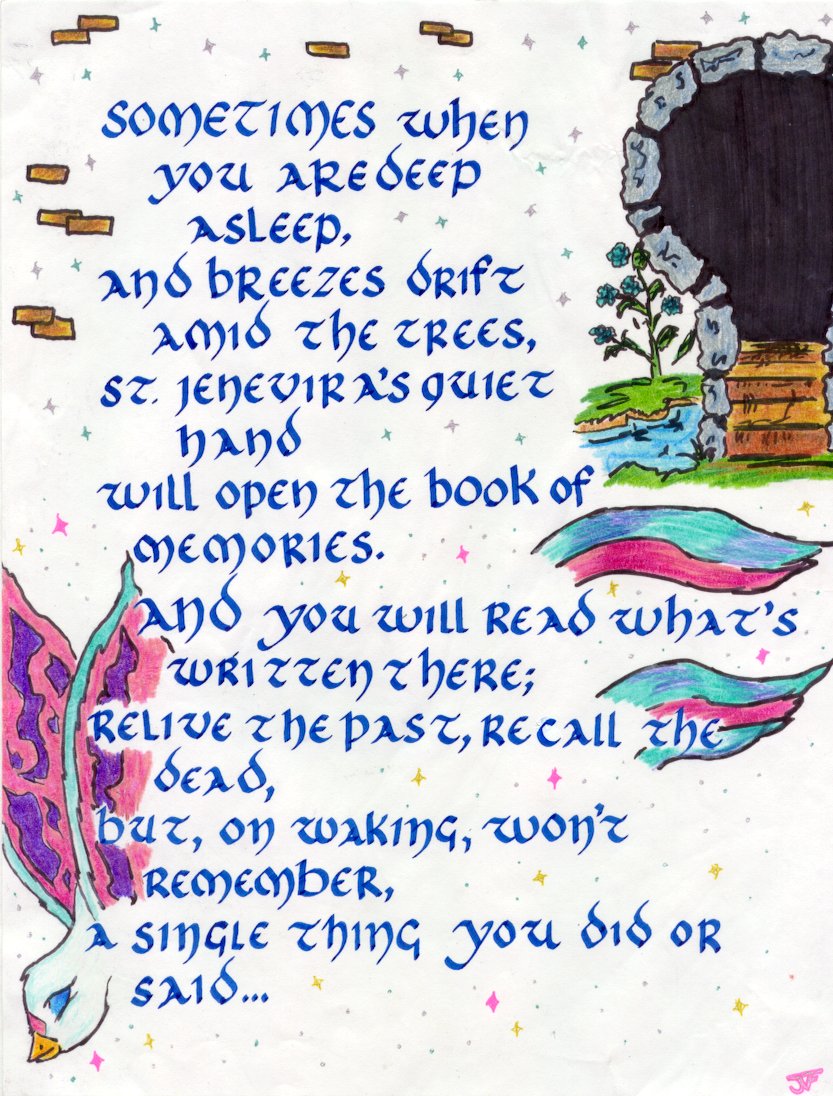 SOMETIMES when
you ARE DEEP
ASLEEP,
AND BREEZES DRIFT
AMID THE TREES,
ST. JENEVIRA'S QUIET
HAND
WILL OPEN THE BOOK OF
MEMORIES.
AND YOU WILL READ WHAT'S
WRITTEN THERE;
RELIVE THE PAST, RECALL THE
DEAD,
BUT, ON WAKING, WON'T
REMEMBER,
A SINGLE THING YOU DID OR
SAID...
JVF